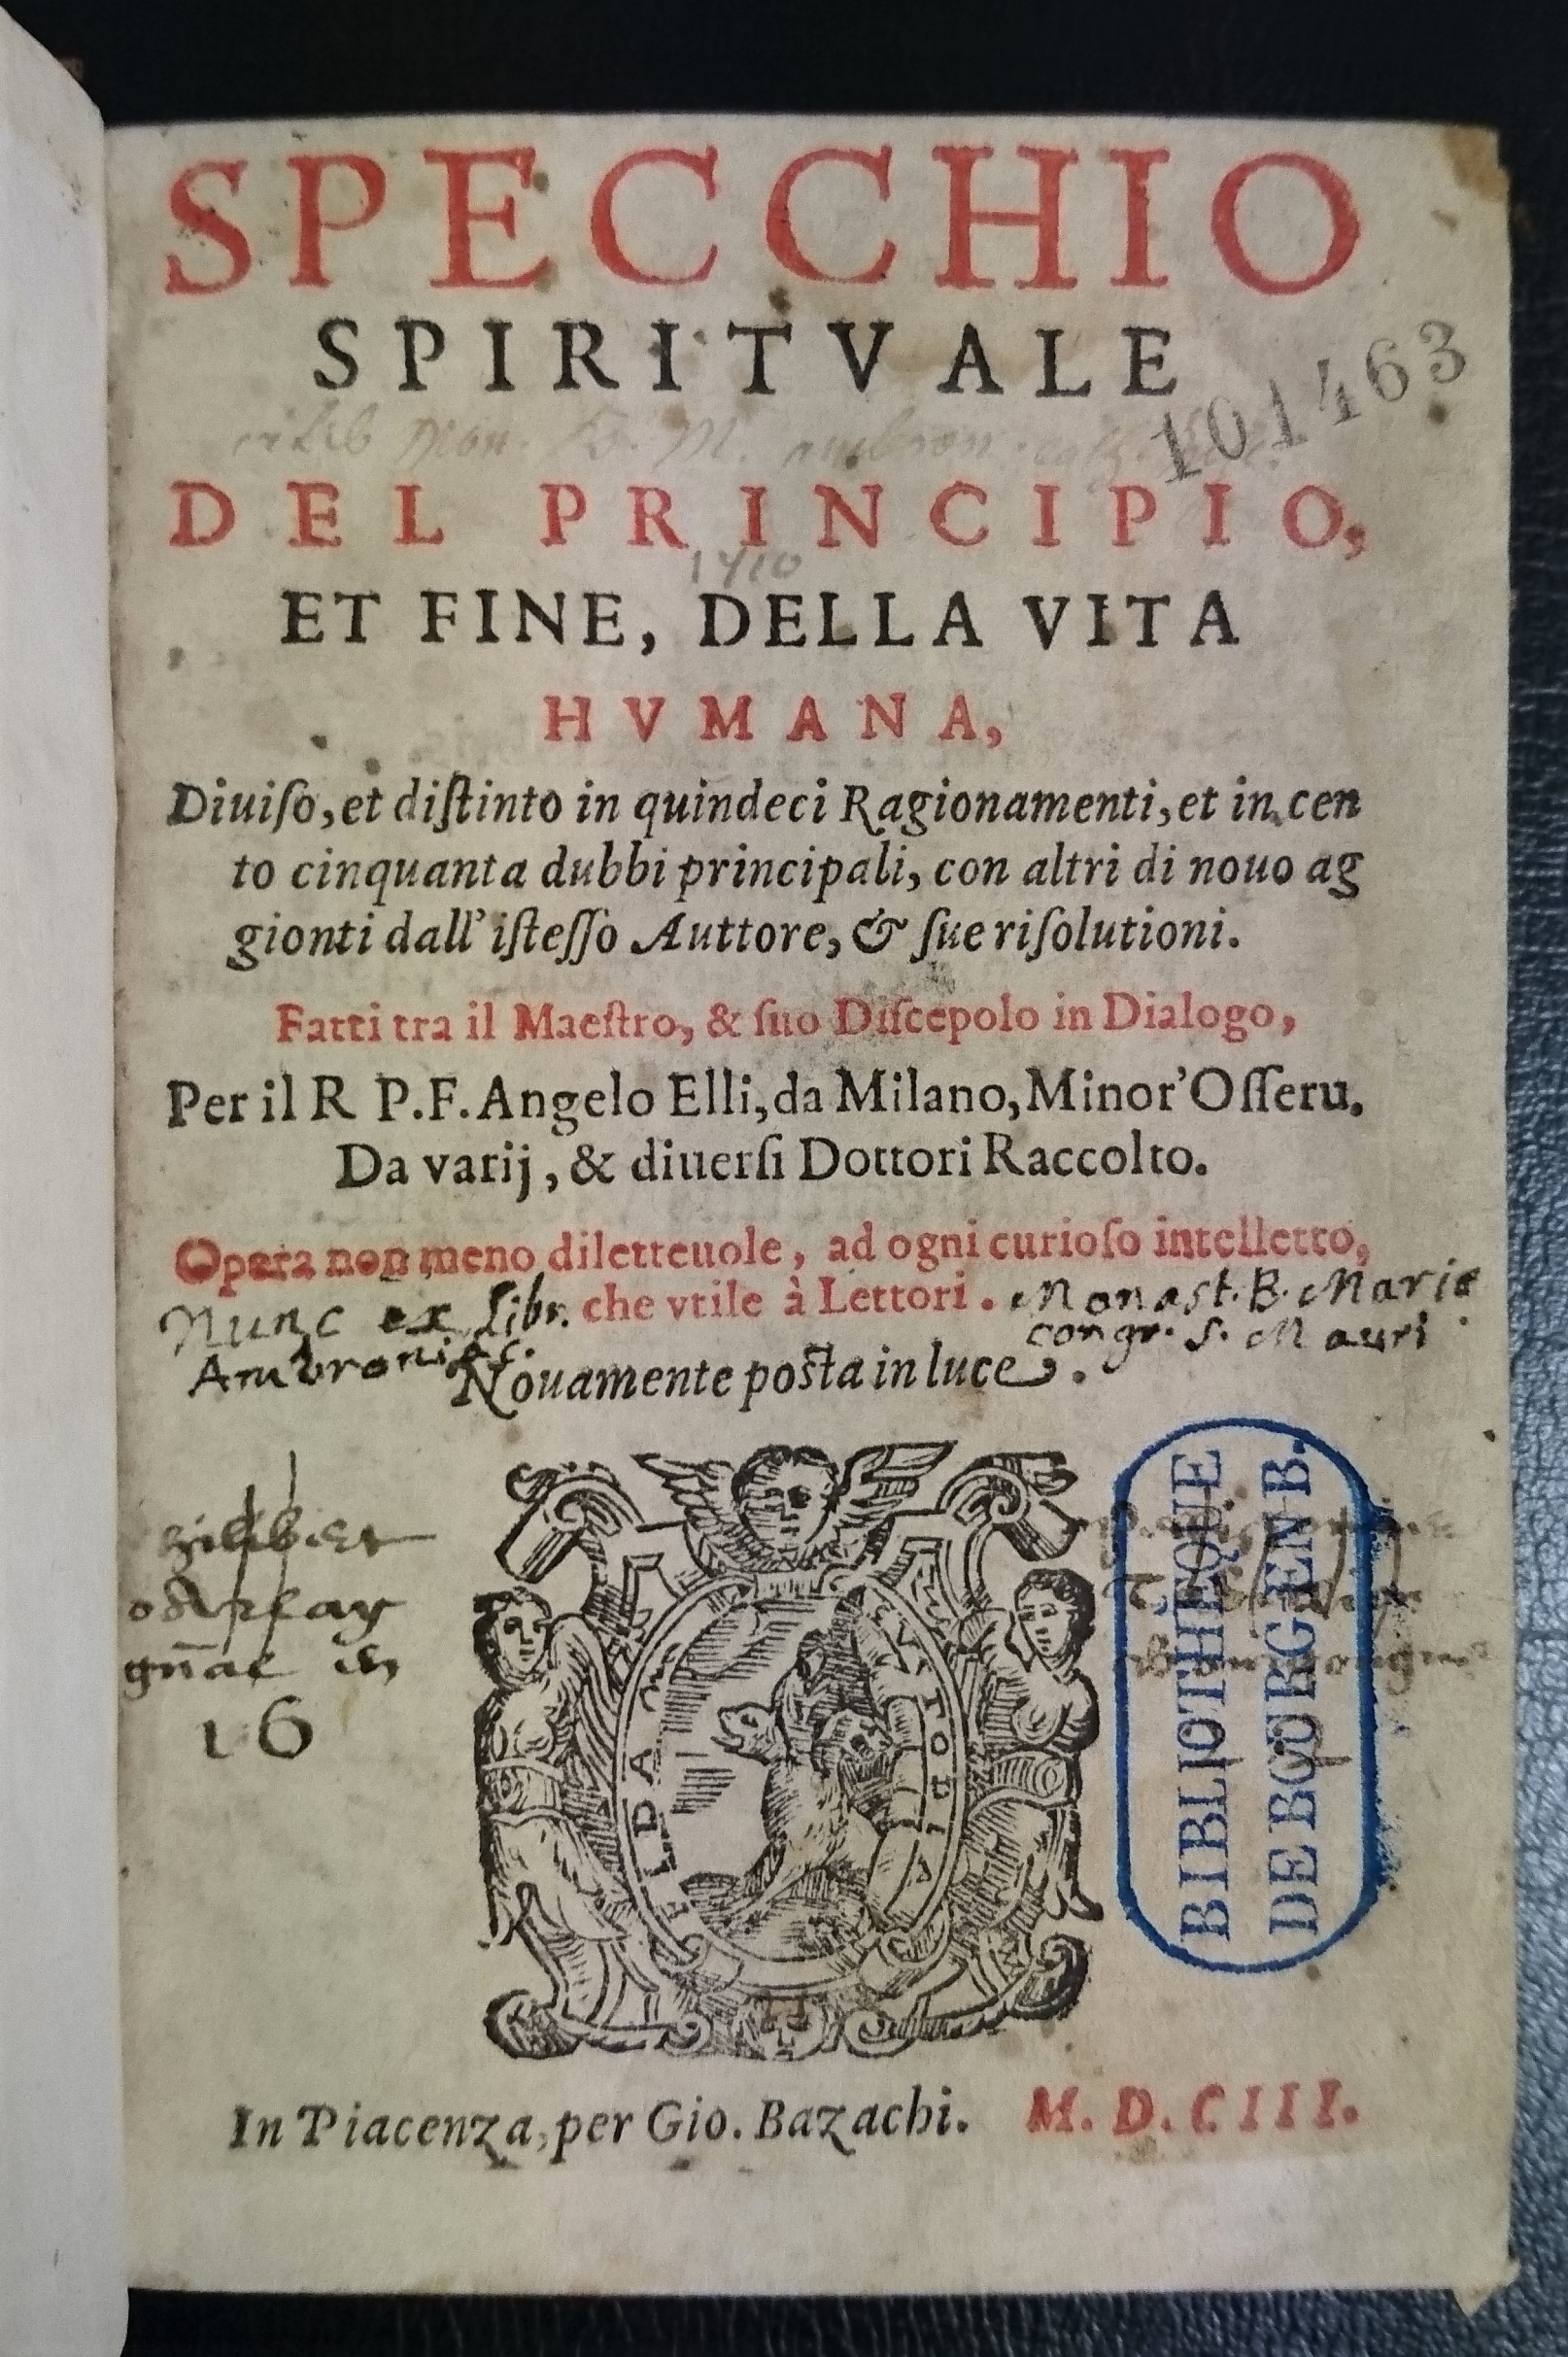 SPECCHIO
SPIRITVALE
101463
DEL PRINCIPIO,
ET FINE, DELLA VITA
HVMANA,
Diuiſo, et diſtinto in quindeci Ragionamenti, et in cen
to cinquanta dubbi principali, con altri di nouo ag
gionti dall'iſteſſo Auttore, & ſue riſolutioni.
Fatti tra il Maeſtro, & ſuo Diſcepolo in Dialogo,
Per il R P. F. Angelo Elli, da Milano, Minor'Oſſeru.
Da varij, & diuerſi Dottori Raccolto.
Opera non meno diletteuole, ad ogni curioſo intelletto,
che vtile à Lettori.
Nunc ex libr. Monast. B. Mariæ
Ambroniac. congr. S. Mauri
Nouamente poſta in luce.
16
BIBLIOTHEQUE
DE BOURG EN B.
In Piacenza, per Gio. Bazachi. M. D. CIII.